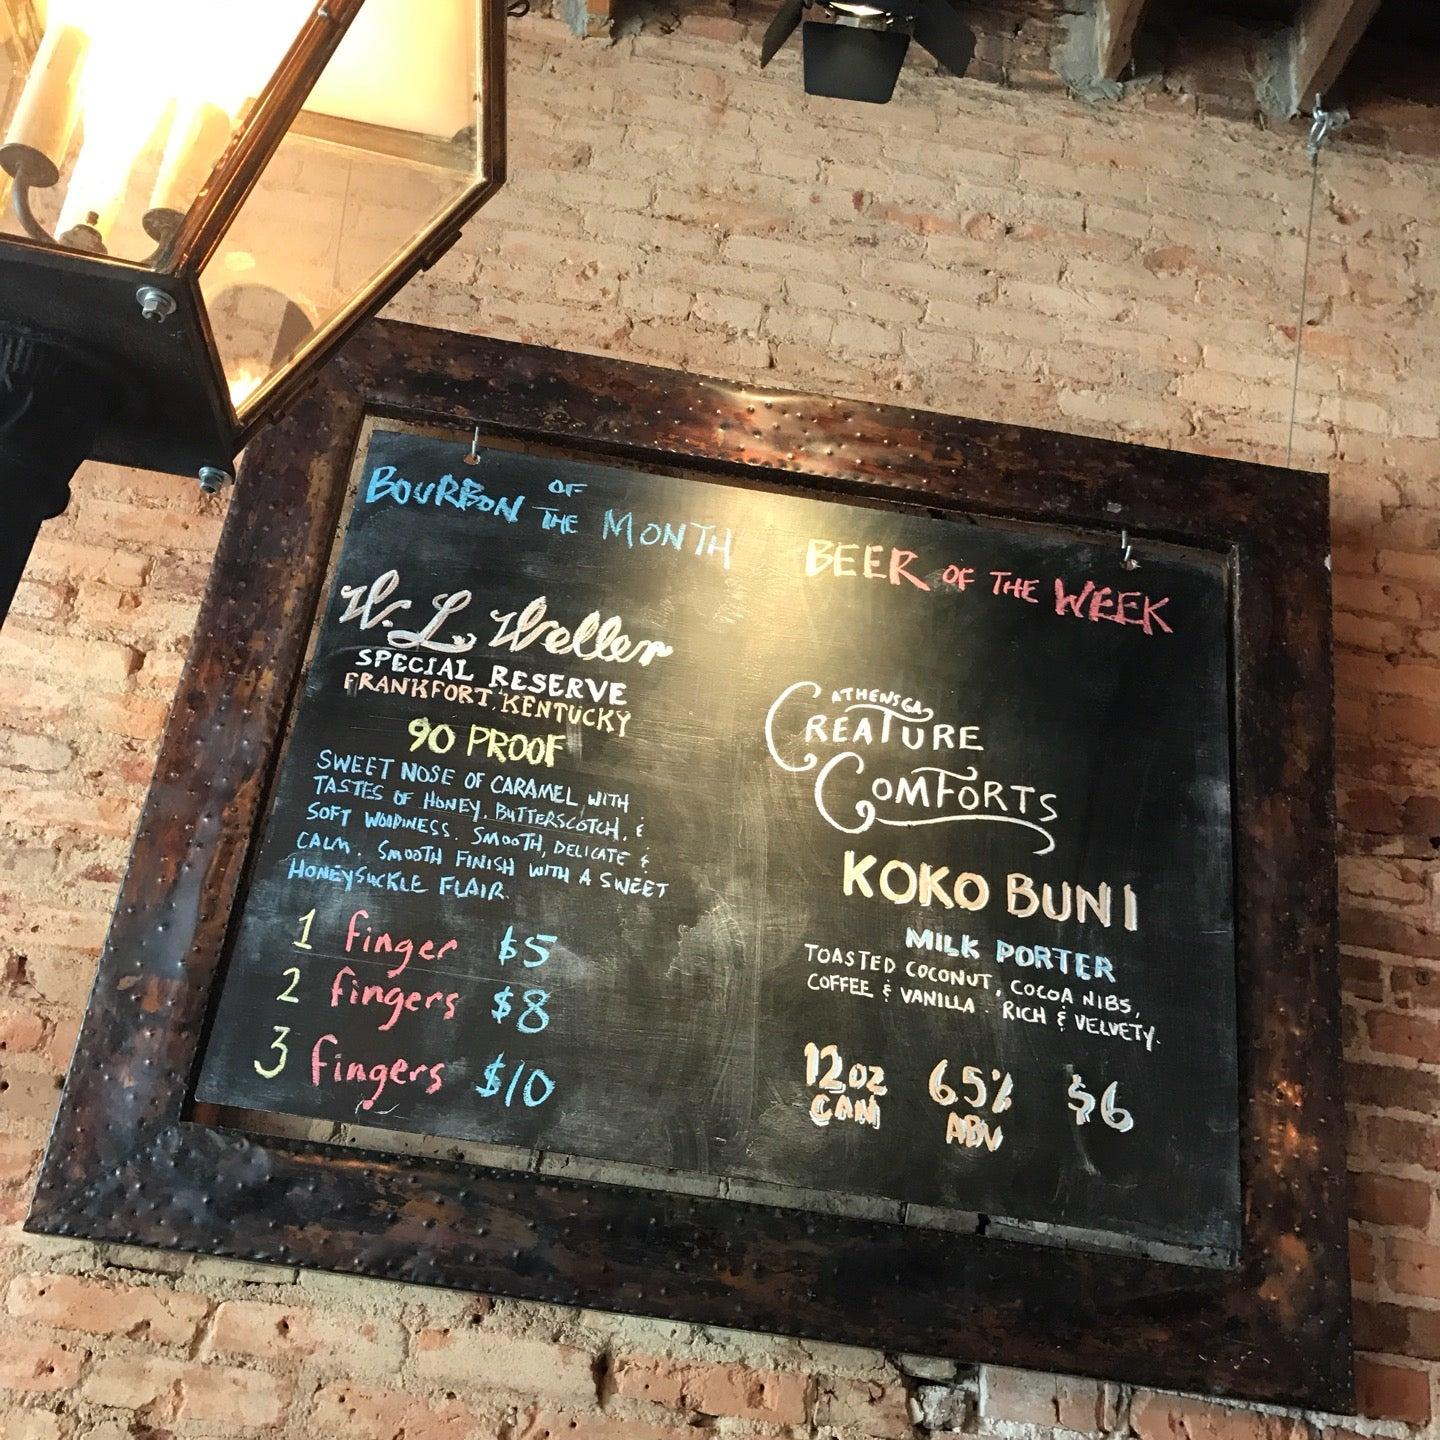 BOURBON OF THE MONTH
W. L. Weller
SPECIAL RESERVE
FRANKFORT, KENTUCKY
90 PROOF
SWEET NOSE OF CARAMEL WITH
TASTES OF HONEY, BUTTERSCOTCH, &
SOFT WOODINESS. SMOOTH, DELICATE &
CALM. SMOOTH FINISH WITH A SWEET
HONEYSUCKLE FLAIR.
1 finger $5
2 fingers $8
3 fingers $10
BEER OF THE WEEK
ATHENS GA
CREATURE
COMFORTS
KOKO BUNI
MILK PORTER
TOASTED COCONUT, COCOA NIBS,
COFFEE & VANILLA. RICH & VELVETY.
12oz CAN 6.5% ABV $6